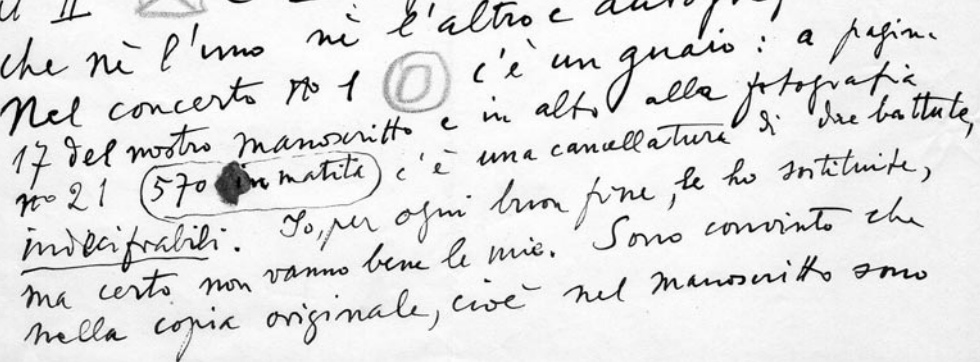 che nè l'uno nè l'altro è
Nel concerto no 1 c'è un guaio: a pagin.
17 del nostro manoscritto e in alto alla fotografia
no 21 (570 in matita) c'è una cancellatura di due battute,
indecifrabili. Io, per ogni buon fine, le ho sostituite,
ma certo non vanno bene le mie. Sono convinto che
nella copia originale, cioè nel manoscritto sono